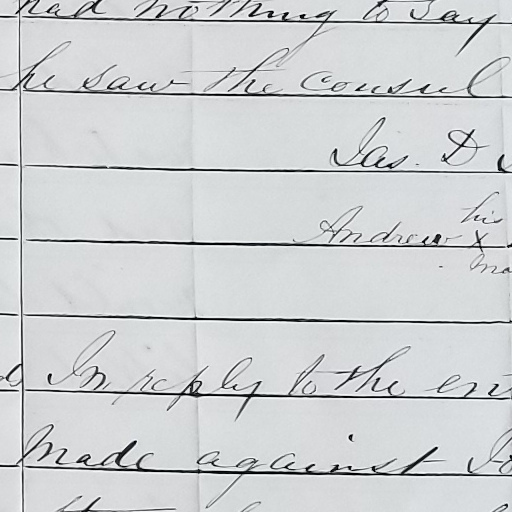 had nothing to say
he saw the consul
Jas. D
his
Andrew X
In reply to the
made against